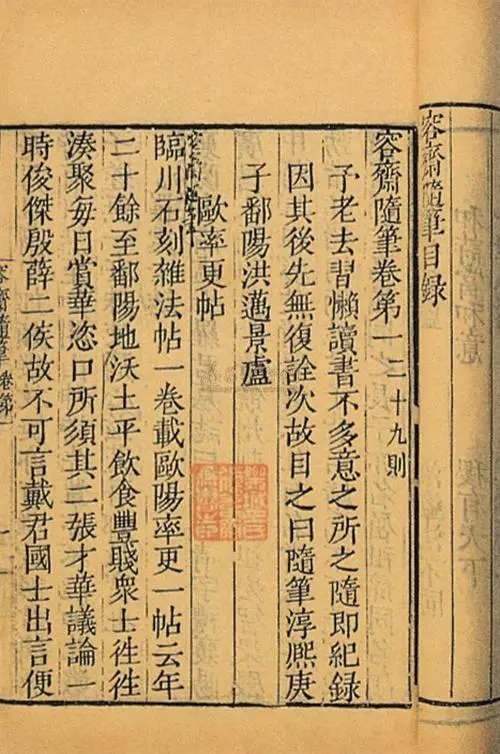 容齋隨筆目録
容齋隨筆卷第一二十九則
予老去習懶讀書不多意之所之隨即紀録
因其後先無復詮次故目之曰隨筆淳熈庚
子鄱陽洪邁景盧
歐率更帖
臨川石刻雜法帖一卷載歐陽率更一帖云年
二十餘至鄱陽地沃土平飲食豐賤衆士往往
湊聚每日賞華恣口所須其二張才華議論一
時俊傑殷薛二侯故不可言戴君國士出言便
容齋隨筆卷第一